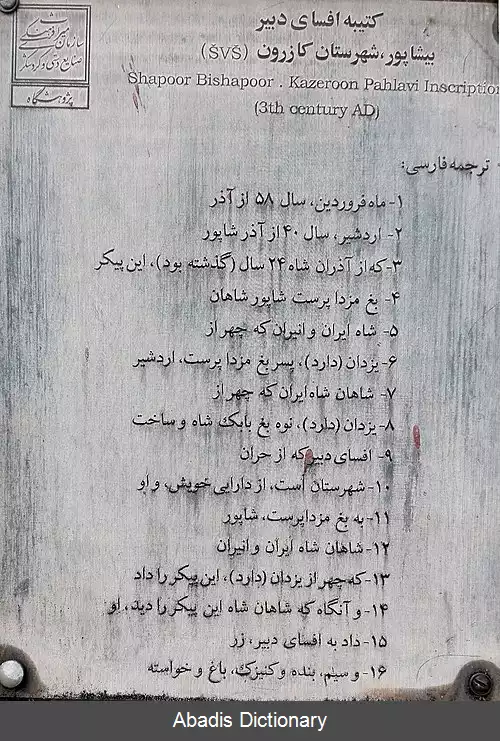 سازمان میراث فرهنگی
صنایع دستی و گردشگری
پژوهشگاه
کتیبه افسای دبیر
بیشاپور، شهرستان کازرون (ŠVŠ)
Shapoor Bishapoor . Kazeroon Pahlavi Inscription
(3th century AD)
ترجمه فارسی:
۱- ماه فروردین، سال ۵۸ از آذر
۲- اردشیر، سال ۴۰ از آذر شاپور
۳- که از آذران شاه ۲۴ سال (گذشته بود)، این پیکر
۴- بغ مزدا پرست شاپور شاهان
۵- شاه ایران و انیران که چهر از
۶- یزدان (دارد)، پسر بغ مزدا پرست، اردشیر
۷- شاهان شاه ایران که چهر از
۸- یزدان (دارد)، نوه بغ بابک شاه و ساخت
۹- افسای دبیر که از حران
۱۰- شهرستان است، از دارایی خویش، و او
۱۱- به بغ مزداپرست، شاپور
۱۲- شاهان شاه ایران و انیران
۱۳- که چهر از یزدان (دارد)، این پیکر را داد
۱۴- و آنگاه که شاهان شاه این پیکر را دید، او
۱۵- داد به افسای دبیر، زر
۱۶- و سیم، بنده و کنیزک، باغ و خواسته
Abadis Dictionary